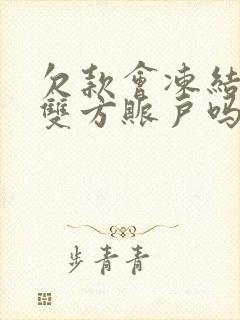 欠款會凍結
雙方賬戶吗
步青青